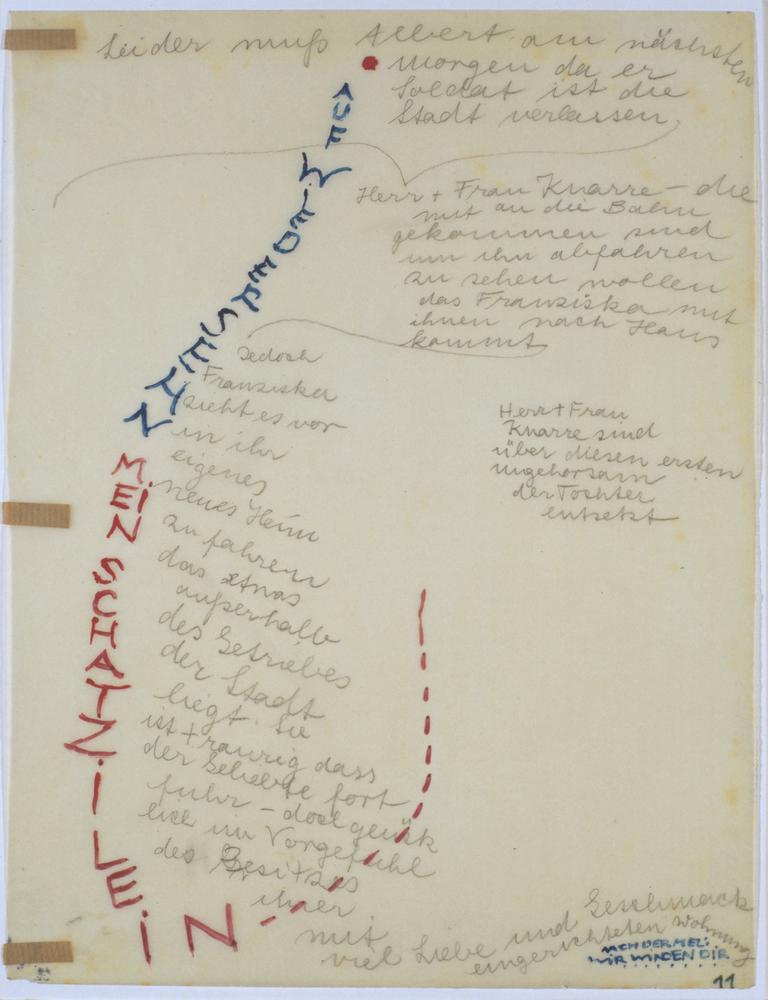 Leider muß Albert am nächsten
Morgen da er
Soldat ist die
Stadt verlassen.
AUF WIEDERSEHN
MEIN SCHATZILEIN
Herr + Frau Knarre – die
mit an die Bahn
gekommen sind
um ihn abfahren
zu sehen wollen
das Franziska mit
ihnen nach Haus
kommt
Jedoch
Franziska
zieht es vor
in ihr
eigenes
neues Heim
zu fahren
das etwas
außerhalb
des Getriebes
der Stadt
liegt. Sie
ist traurig dass
der Geliebte fort
fuhr – doch glück
lich im Vorgefühl
des Besitzes
ihrer
mit
viel Liebe und Geschmack
eingerichteten Wohnung
Herr + Frau
Knarre sind
über diesen ersten
ungehorsam
der Tochter
entsetzt
NACH DER MEL:
WIR WINDEN DIR
11